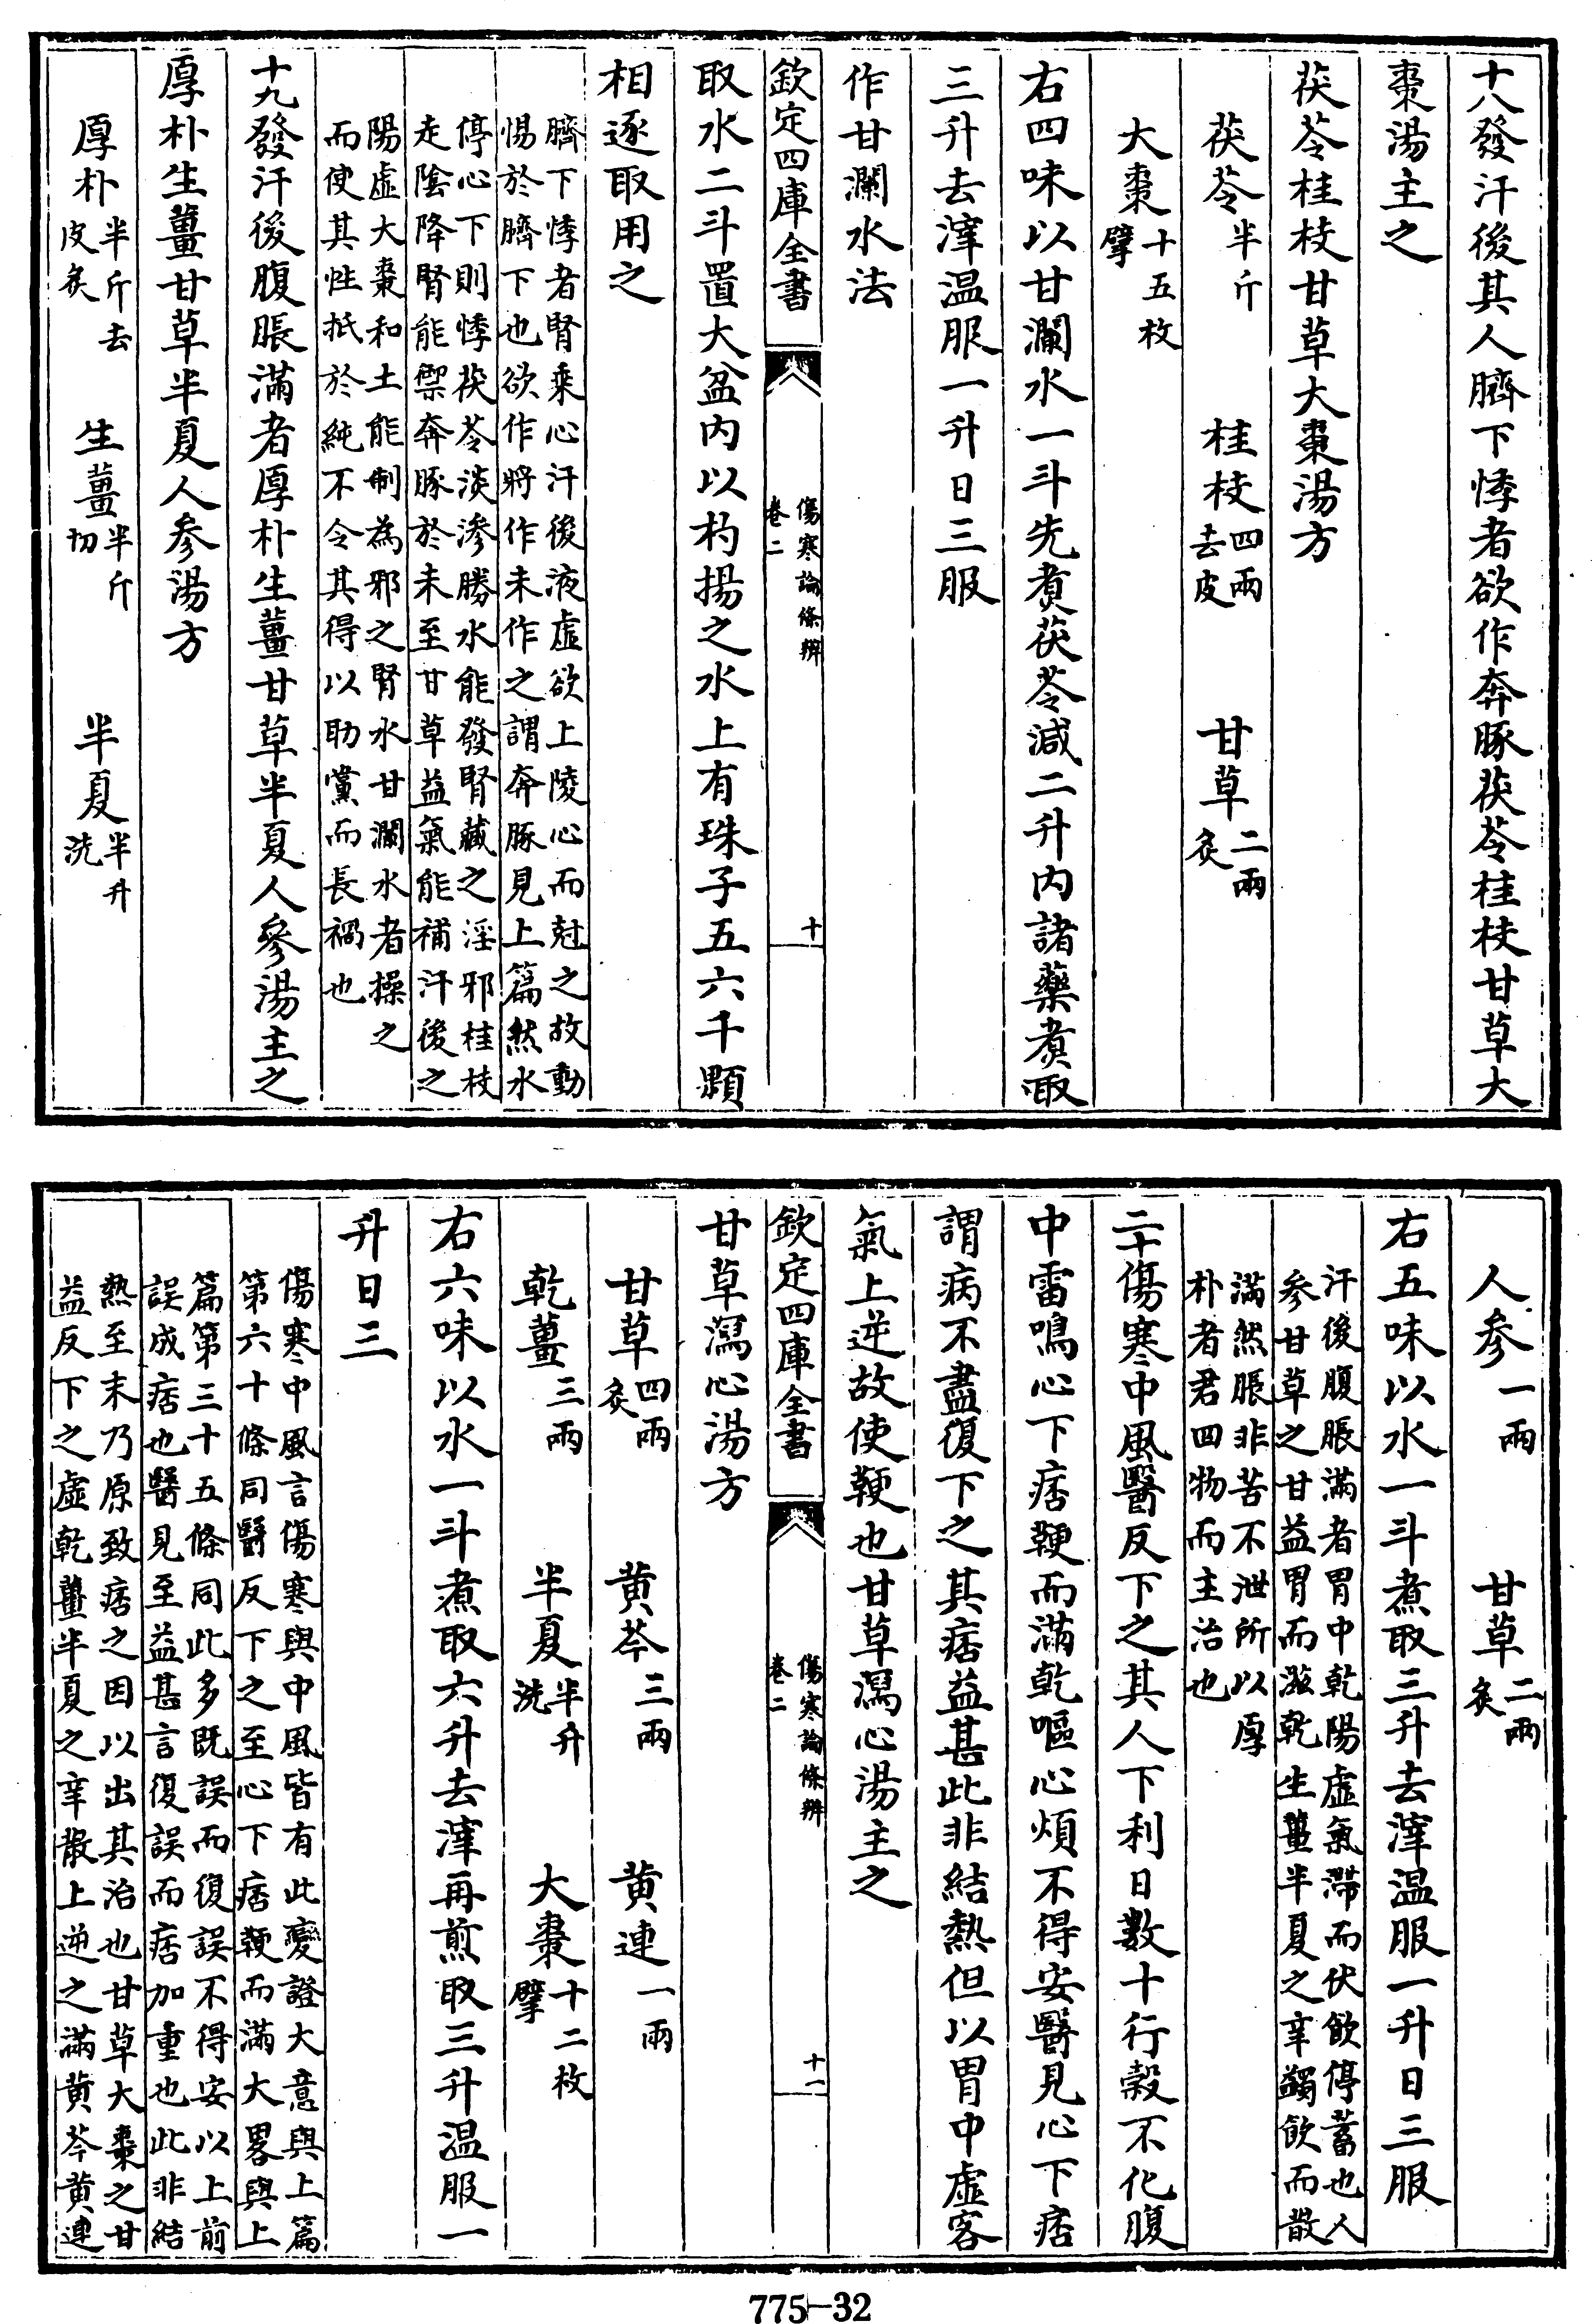 十八發汗後其人臍下悸者欲作奔豚茯苓桂枝甘草大
棗湯主之
茯苓桂枝甘草大棗湯方
茯苓半斤 桂枝四兩去皮 甘草二兩炙
大棗十五枚擘
右四味以甘瀾水一斗先煑茯苓減二升內諸藥煑取
三升去滓温服一升日三服
作甘瀾水法
欽定四庫全書 傷寒論條辨卷二 十
取水二斗置大盆內以杓揚之水上有珠子五六千顆
相逐取用之
臍下悸者腎乘心汗後液虛欲上陵心而尅之故動
惕於臍下也欲作將作未作之謂奔豚見上篇然水
停心下則悸茯苓淡滲勝水能發腎藏之淫邪桂枝
走陰降腎能禦奔豚於未至甘草益氣能補汗後之
陽虛大棗和土能制為邪之腎水甘瀾水者操之
而使其性抵於純不令其得以助黨而長禍也
十九發汗後腹脹滿者厚朴生薑甘草半夏人參湯主之
厚朴生薑甘草半夏人參湯方
厚朴半斤去皮炙 生薑半斤切 半夏半升洗
人參一兩 甘草二兩炙
右五味以水一斗煮取三升去滓温服一升日三服
汗後腹脹滿者胃中乾陽虛氣滯而伏飲停蓄也人
參甘草之甘益胃而滋乾生薑半夏之辛蠲飲而散
滿然脹非苦不泄所以厚
朴者君四物而主治也
二十傷寒中風醫反下之其人下利日數十行穀不化腹
中雷鳴心下痞鞕而滿乾嘔心煩不得安醫見心下痞
謂病不盡復下之其痞益甚此非結熱但以胃中虛客
氣上逆故使鞕也甘草瀉心湯主之
欽定四庫全書 傷寒論條辨卷二 十一
甘草瀉心湯方
甘草四兩炙 黄芩三兩 黄連一兩
乾薑三兩 半夏半升洗 大棗十二枚擘
右六味以水一斗煮取六升去滓再煎取三升温服一
升日三
傷寒中風言傷寒與中風皆有此變證大意與上篇
第六十條同醫反下之至心下痞鞕而滿大畧與上
篇第三十五條同此多既誤而復誤不得安以上前
誤成痞也醫見至益甚言復誤而痞加重也此非結
熱至末乃原致痞之因以出其治也甘草大棗之甘
益反下之虛乾薑半夏之辛散上逆之滿黄芩黄連
775-32